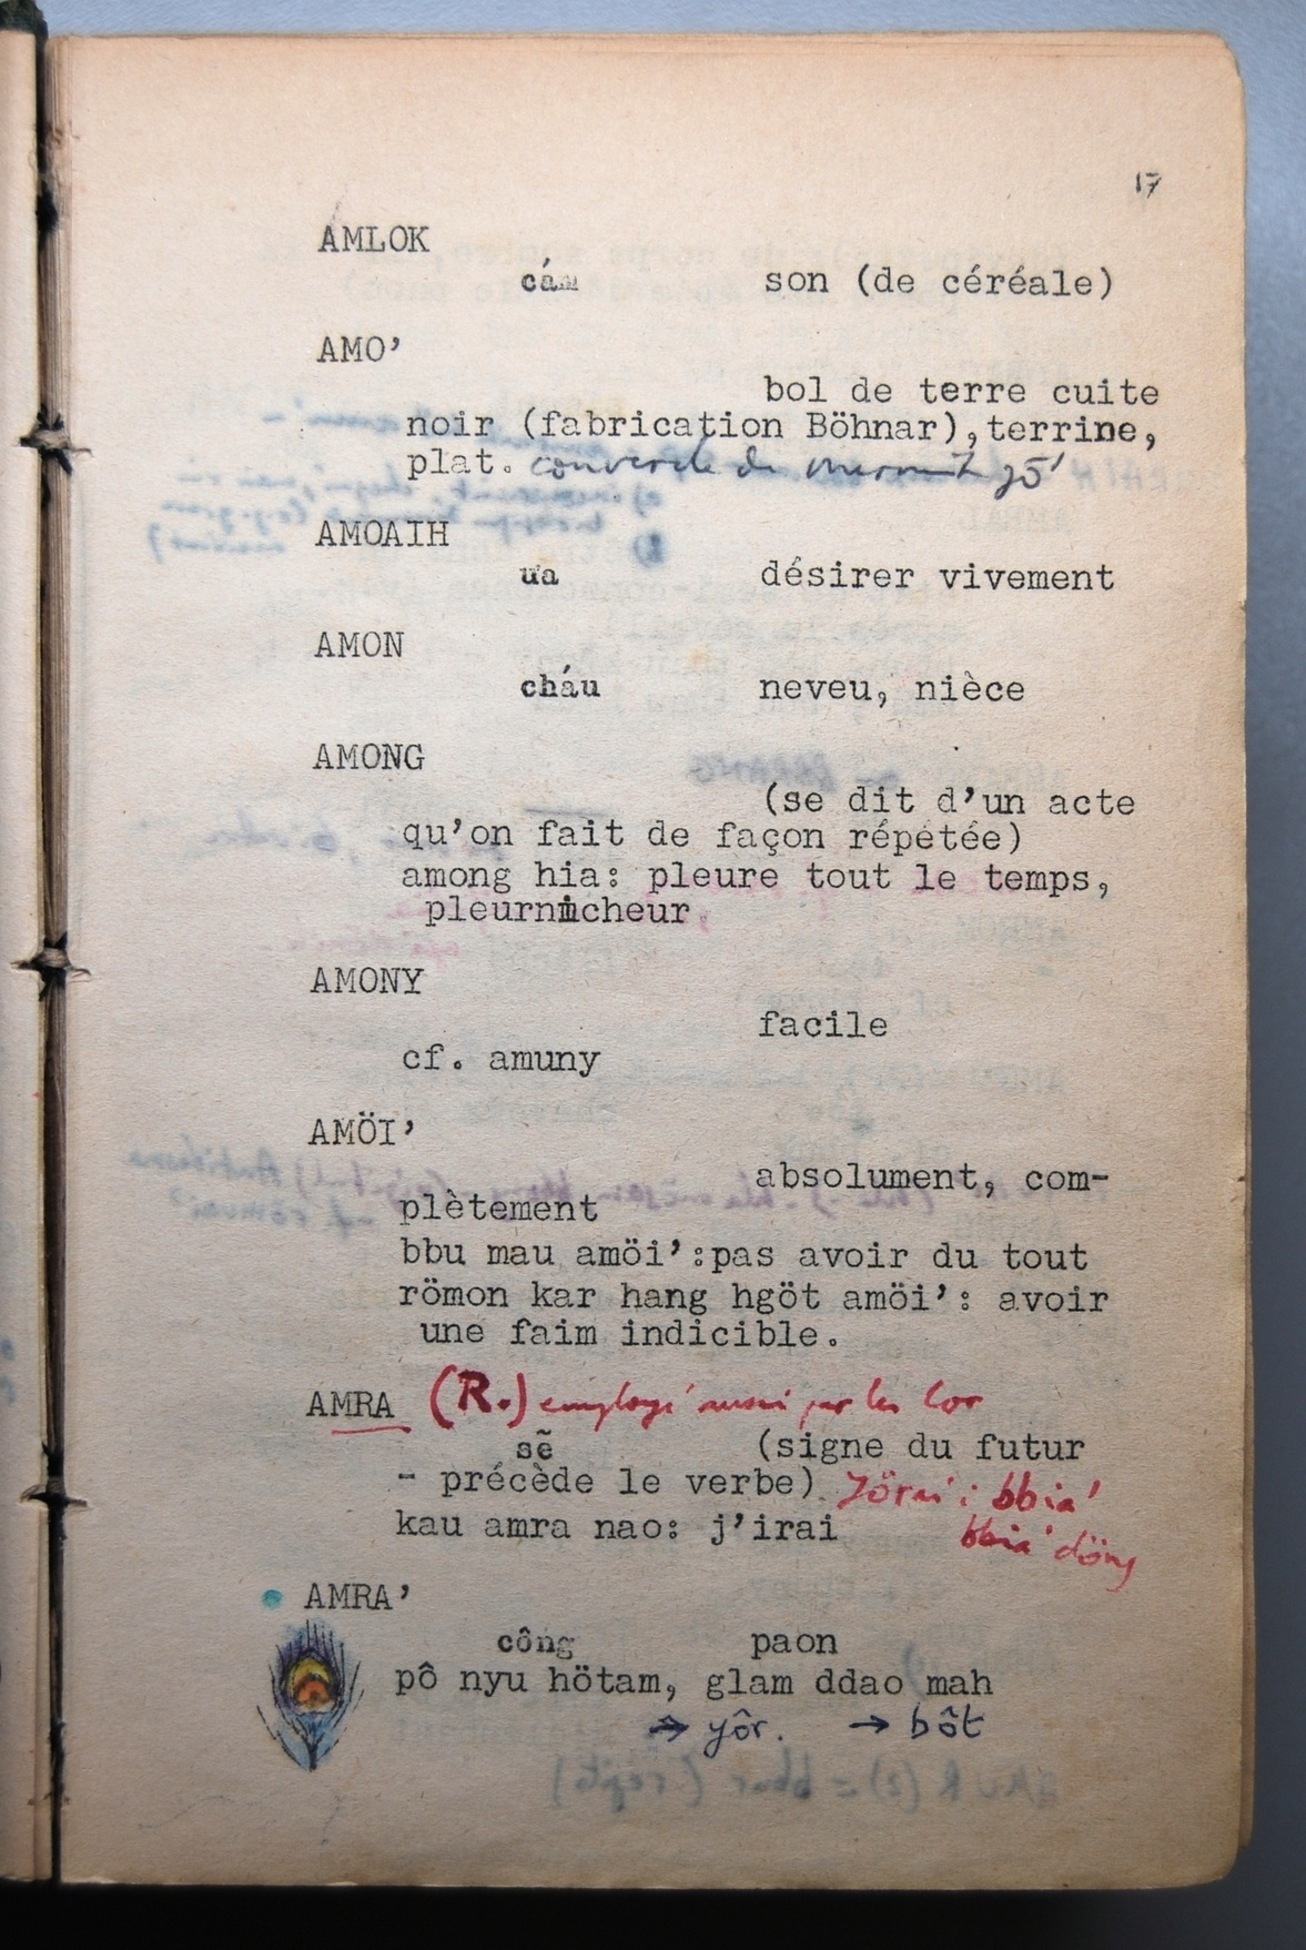 17
AMLOK
cám son (de céréale)
AMO’
bol de terre cuite
noir (fabrication Böhnar), terrine,
plat. couvercle de marmite gö'
AMOAIH
ưa désirer vivement
AMON
cháu neveu, nièce
AMONG
(se dit d’un acte
qu’on fait de façon répétée)
among hia: pleure tout le temps,
pleurnicheur
AMONY
facile
cf. amuny
AMÖI’
absolument, com-
plètement
bbu mau amöi’:pas avoir du tout
römon kar hang hgöt amöi’: avoir
une faim indicible.
AMRA (R.) employé aussi par les Cor
sẽ (signe du futur
- précède le verbe) Jörai : bbia'
kau amra nao: j’irai bbia' döng
AMRA’
công paon
pô nyu hötam, glam ddao mah
→ yôr. → bôt